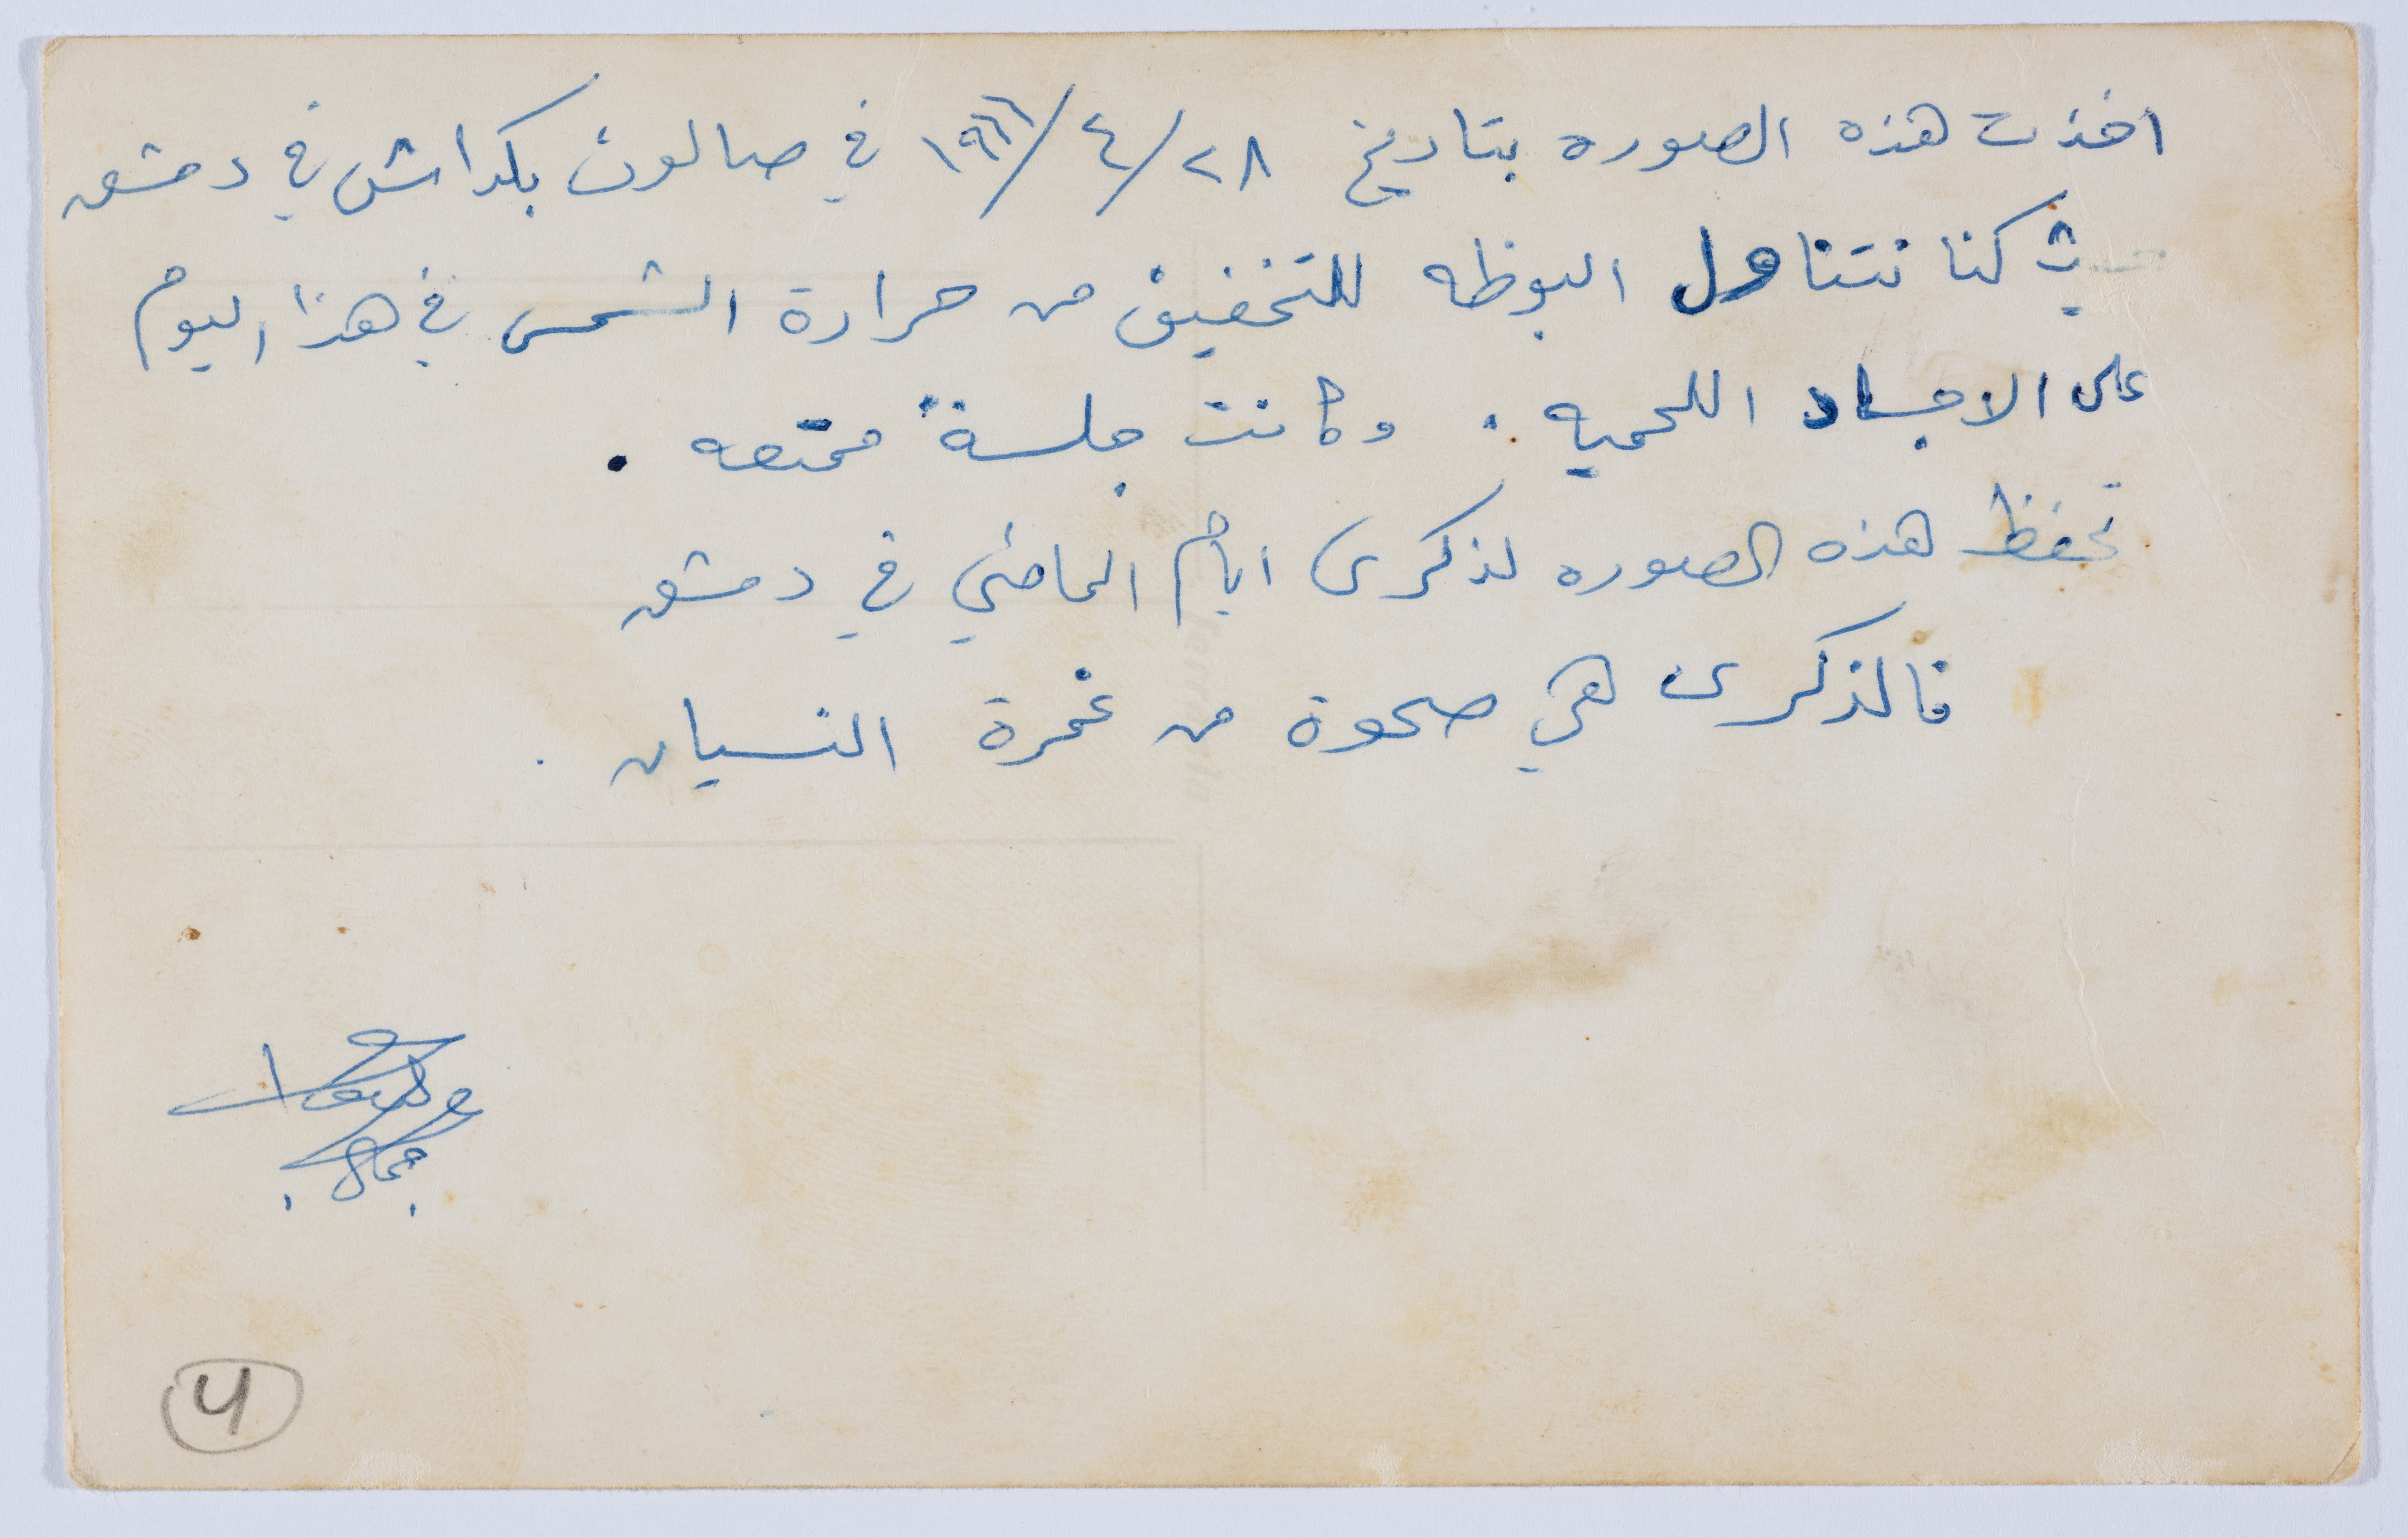 اخذت هذه الصوره بتاريخ ٢٨/٤/١٩٦٦ في صالون بكداش في دمشق
كنا نتناول البوظه للتخفيف من حرارة الشمس في هذا اليوم
على الاجساد اللحميه. وكانت جلسة ممتعه.
تحفظ هذه الصوره لذكرى ايام الماضي في دمشق
فالذكرى هي صحوة من غمرة النسيان.
4